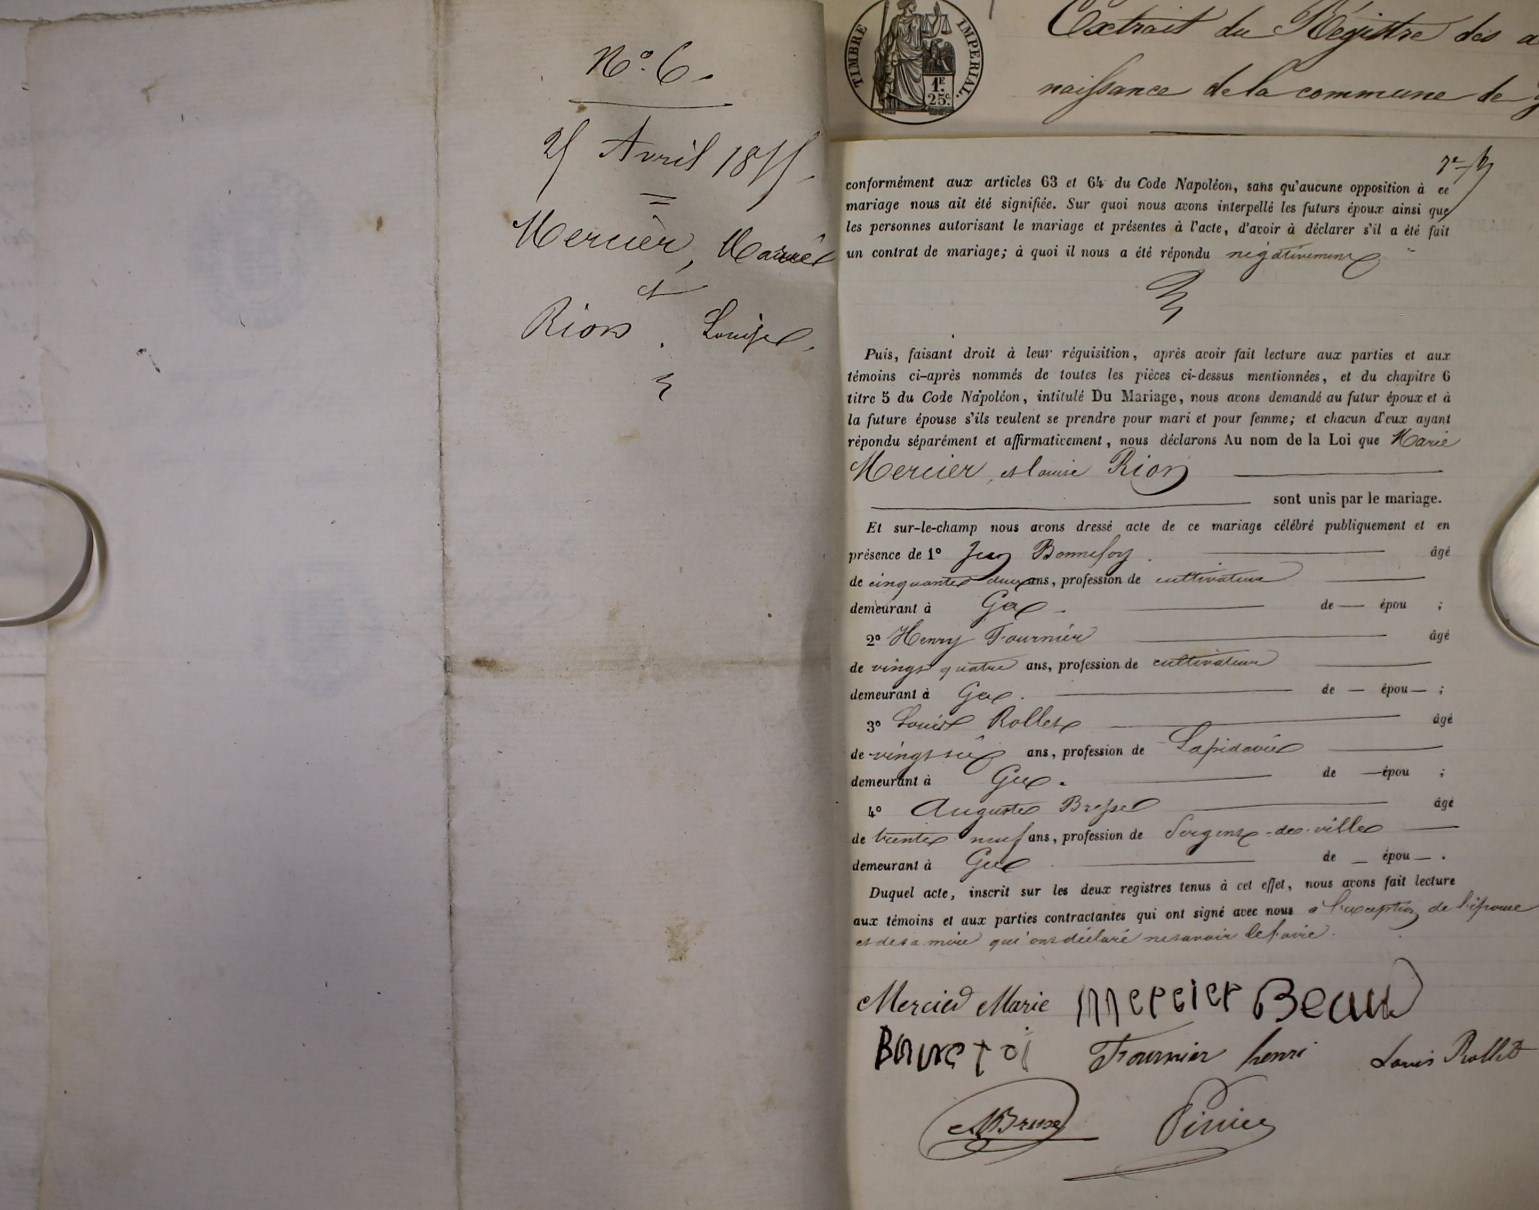 N.º 6.
Avril 18
Mercier, Marie
et
Rion. Louise,
TIMBRE IMPERIAL.
1F. 25c.
Extrait du Régistre des a
naissance de la commune de
conformément aux articles 63 et 64 du Code Napoléon, sans qu'aucune opposition à ce
mariage nous ait été signifiée. Sur quoi nous avons interpellé les futurs époux ainsi que
les personnes autorisant le mariage et présentes à l'acte, d'avoir à déclarer s'il a été fait
un contrat de mariage; à quoi il nous a été répondu négativement
Puis, faisant droit à leur réquisition, après avoir fait lecture aux parties et aux
témoins ci-après nommés de toutes les pièces ci-dessus mentionnées, et du chapitre 6
titre 5 du Code Napoléon, intitulé Du Mariage, nous avons demandé au futur époux et à
la future épouse s'ils veulent se prendre pour mari et pour femme; et chacun d'eux ayant
répondu séparément et affirmativement, nous déclarons Au nom de la Loi que Marie
Mercier, et louise Rion
sont unis par le mariage.
Et sur-le-champ nous avons dressé acte de ce mariage célébré publiquement et en
présence de 1º Jean Bonnefoy. âgé
de cinquante deux ans, profession de cultivateur
demeurant à Gex. de — épou ;
2º Henry Fournier âgé
de vingt quatre ans, profession de cultivateur
demeurant à Gex. de — épou — ;
3º Louis Rollet âgé
de vingt six ans, profession de Lapidaire
demeurant à Gex. de — épou ;
4º Auguste Bressel âgé
de trente neuf ans, profession de Sergent-de-ville
demeurant à Gex de — épou — .
Duquel acte, inscrit sur les deux registres tenus à cet effet, nous avons fait lecture
aux témoins et aux parties contractantes qui ont signé avec nous à l'exception de l'épouse
et de sa mère qui ont déclaré ne savoir le faire.
Mercier Marie Mercier Beau
Fournier henri Louis Rollet